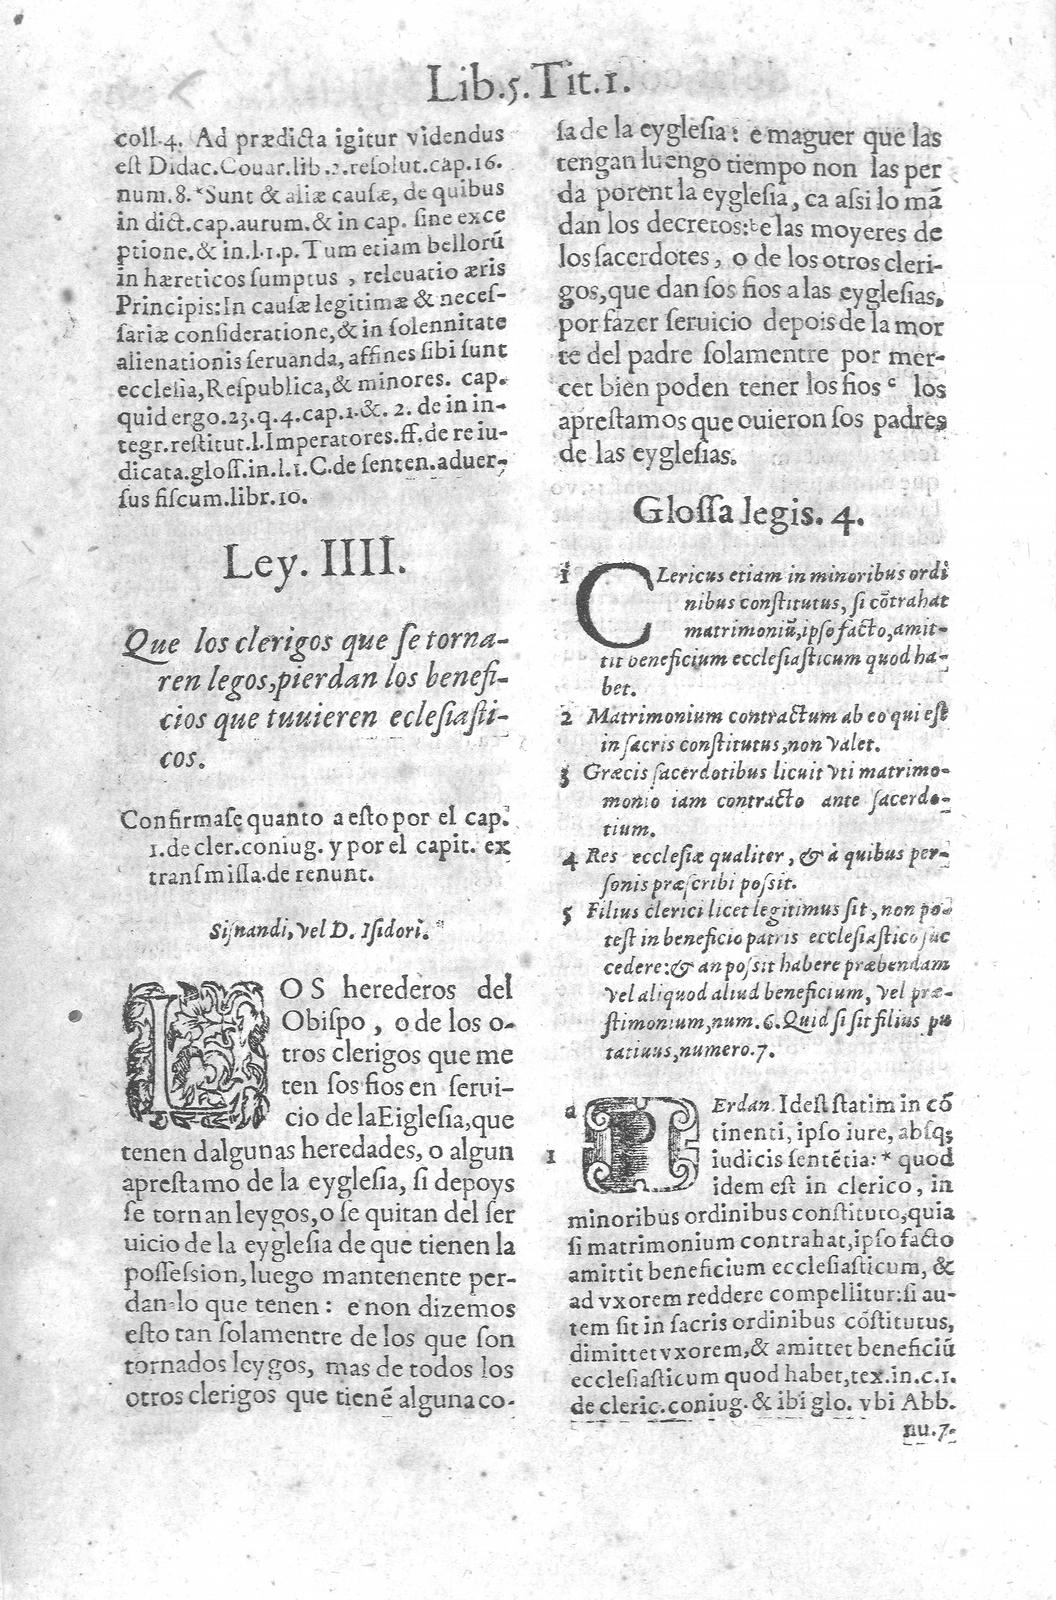 Lib.5.Tit.1.
coll.4. Ad prædicta igitur videndus
eſt Didac.Couar.lib.2.reſolut.cap.16.
num.8.*Sunt & aliæ cauſæ, de quibus
in dict.cap.aurum.& in cap. ſine exce
ptione.& in.l.1.p.Tum etiam bellorũ
in hæreticos ſumptus , releuatio æris
Principis:In cauſæ legitimæ & neceſ-
ſariæ conſideratione,& in ſolennitate
alienationis ſeruanda, affines ſibi ſunt
eccleſia,Reſpublica,& minores. cap.
quid ergo.23.q.4.cap.1.&. 2. de in in-
tegr.reſtitut.l.Imperatores.ff.de re iu-
dicata.gloſſ.in.l.1.C.de ſenten.aduer-
ſus fiſcum.libr.10.
Ley. IIII.
Que los clerigos que ſe torna-
ren legos,pierdan los benefi-
cios que tuuieren ecleſiaſti-
cos.
Confirmaſe quanto a eſto por el cap.
1.de cler.coniug. y por el capit. ex
tranſmiſſa.de renunt.
Siſnandi, vel D. Iſidori.
LOS herederos del
Obiſpo , o de los o-
tros clerigos que me
ten ſos fios en ſerui-
cio de la Eigleſia,que
tenen dalgunas heredades, o algun
apreſtamo de la eygleſia, ſi depoys
ſe tornan leygos,o ſe quitan del ſer
uicio de la eygleſia de que tienen la
poſſeſsion,luego mantenente per-
dan lo que tenen : e non dizemos
eſto tan ſolamentre de los que ſon
tornados leygos, mas de todos los
otros clerigos que tienẽ alguna co-
ſa de la eygleſia : e maguer que las
tengan luengo tiempo non las per
da porent la eygleſia, ca aſsi lo mã
dan los decretos:b e las moyeres de
los ſacerdotes, o de los otros cleri-
gos,que dan ſos fios a las eygleſias,
por fazer ſeruicio depois de la mor
te del padre ſolamentre por mer-
cet bien poden tener los fios c los
apreſtamos que ouieron ſos padres
de las eygleſias.
Gloſſa legis. 4.
1 CLericus etiam in minoribus ordi
nibus conſtitutus, ſi cõtrahat
matrimoniũ,ipſo facto,amit-
tit beneficium eccleſiaſticum quod ha-
bet.
2 Matrimonium contractum ab eo qui eſt
in ſacris conſtitutus,non valet.
3 Græcis ſacerdotibus licuit vti matrimo-
monio iam contracto ante ſacerdo-
tium.
4 Res eccleſiæ qualiter, & à quibus per-
ſonis præſcribi poſsit.
5 Filius clerici licet legitimus ſit, non po-
teſt in beneficio patris eccleſiaſtico ſuc
cedere:& an poſsit habere præbendam
vel aliquod aliud beneficium, vel præ-
ſtimonium,num.6.Quid ſi ſit filius pu
tatiuus,numero.7.
a PErdan. Id eſt ſtatim in cõ
tinenti, ipſo iure, abſq;
1 iudicis ſentẽtia:* quod
idem eſt in clerico, in
minoribus ordinibus conſtituto,quia
ſi matrimonium contrahat,ipſo facto
amittit beneficium eccleſiaſticum, &
ad vxorem reddere compellitur:ſi au-
tem ſit in ſacris ordinibus cõſtitutus,
dimittet vxorem,& amittet beneficiũ
eccleſiaſticum quod habet,tex.in.c.1.
de cleric.coniug.& ibi glo. vbi Abb.
nu.7.